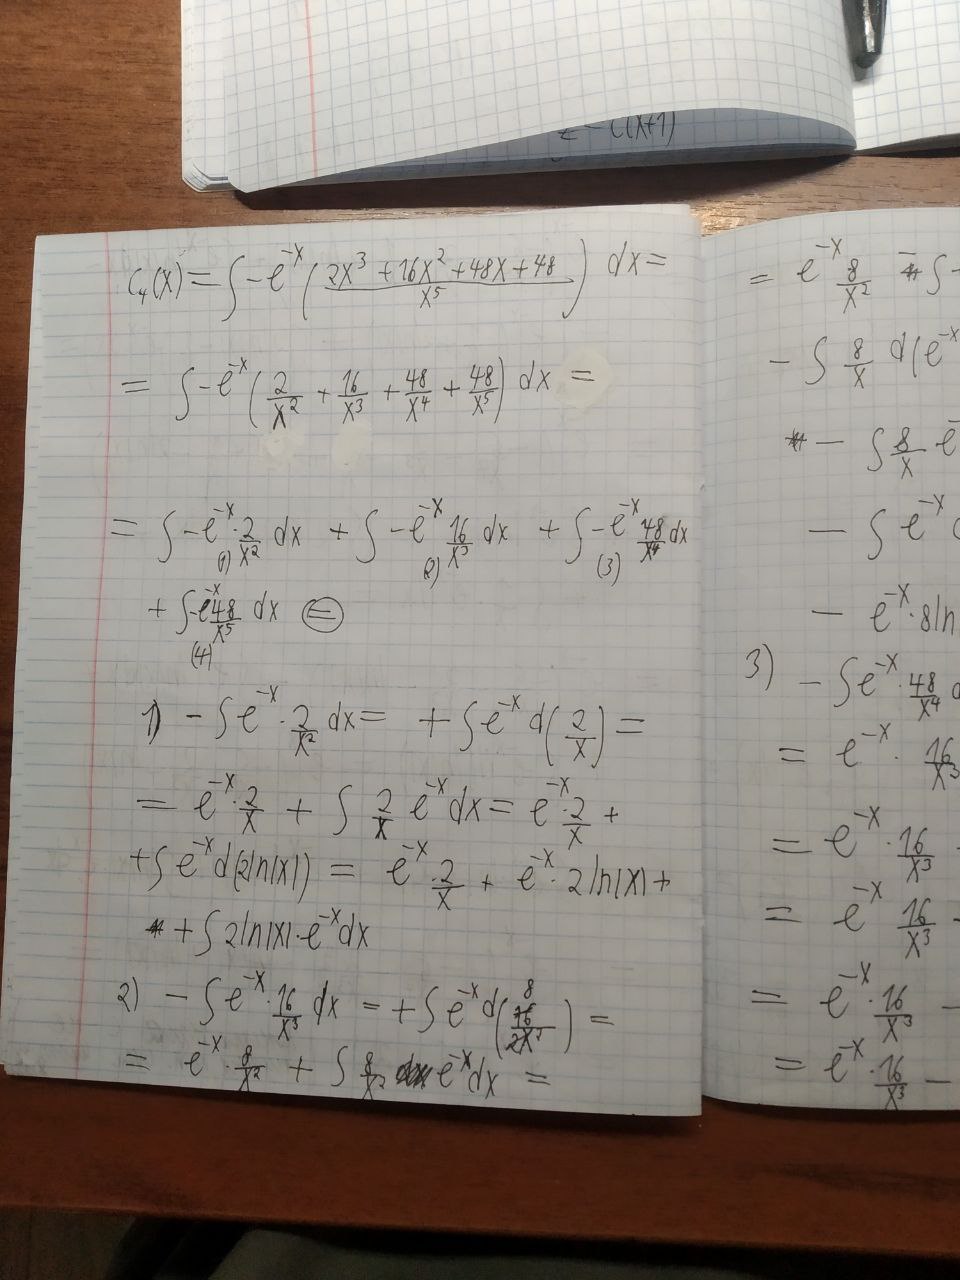 z = C(x+1)
C₄(x) = ∫ -e^{-x} ( (2x³ + 16x² + 48x + 48) / x⁵ ) dx =
= ∫ -e^{-x} ( 2/x² + 16/x³ + 48/x⁴ + 48/x⁵ ) dx =
= ∫ -e^{-x} · 2/x² dx + ∫ -e^{-x} 16/x³ dx + ∫ -e^{-x} 48/x⁴ dx
(1) (2) (3)
+ ∫ -e^{-x} 48/x⁵ dx (=)
(4)
1) - ∫ e^{-x} · 2/x² dx = + ∫ e^{-x} d(2/x) =
= e^{-x} · 2/x + ∫ 2/x e^{-x} dx = e^{-x} · 2/x +
+ ∫ e^{-x} d(2ln|x|) = e^{-x} · 2/x + e^{-x} · 2ln|x| +
+ ∫ 2ln|x| · e^{-x} dx
2) - ∫ e^{-x} · 16/x³ dx = + ∫ e^{-x} d(8 16/2x²) =
= e^{-x} · 8/x² + ∫ 8/x² e^{-x} dx =
= e^{-x} 8/x² - ∫ -
- ∫ 8/x d(e^{-x}
- ∫ 8/x e^{-
- ∫ e^{-x}
- e^{-x} · 8ln
3) - ∫ e^{-x} · 48/x⁴
= e^{-x} · 16/x³
= e^{-x} · 16/x³ -
= e^{-x} 16/x³ -
= e^{-x} · 16/x³ -
= e^{-x} · 16/x³ -